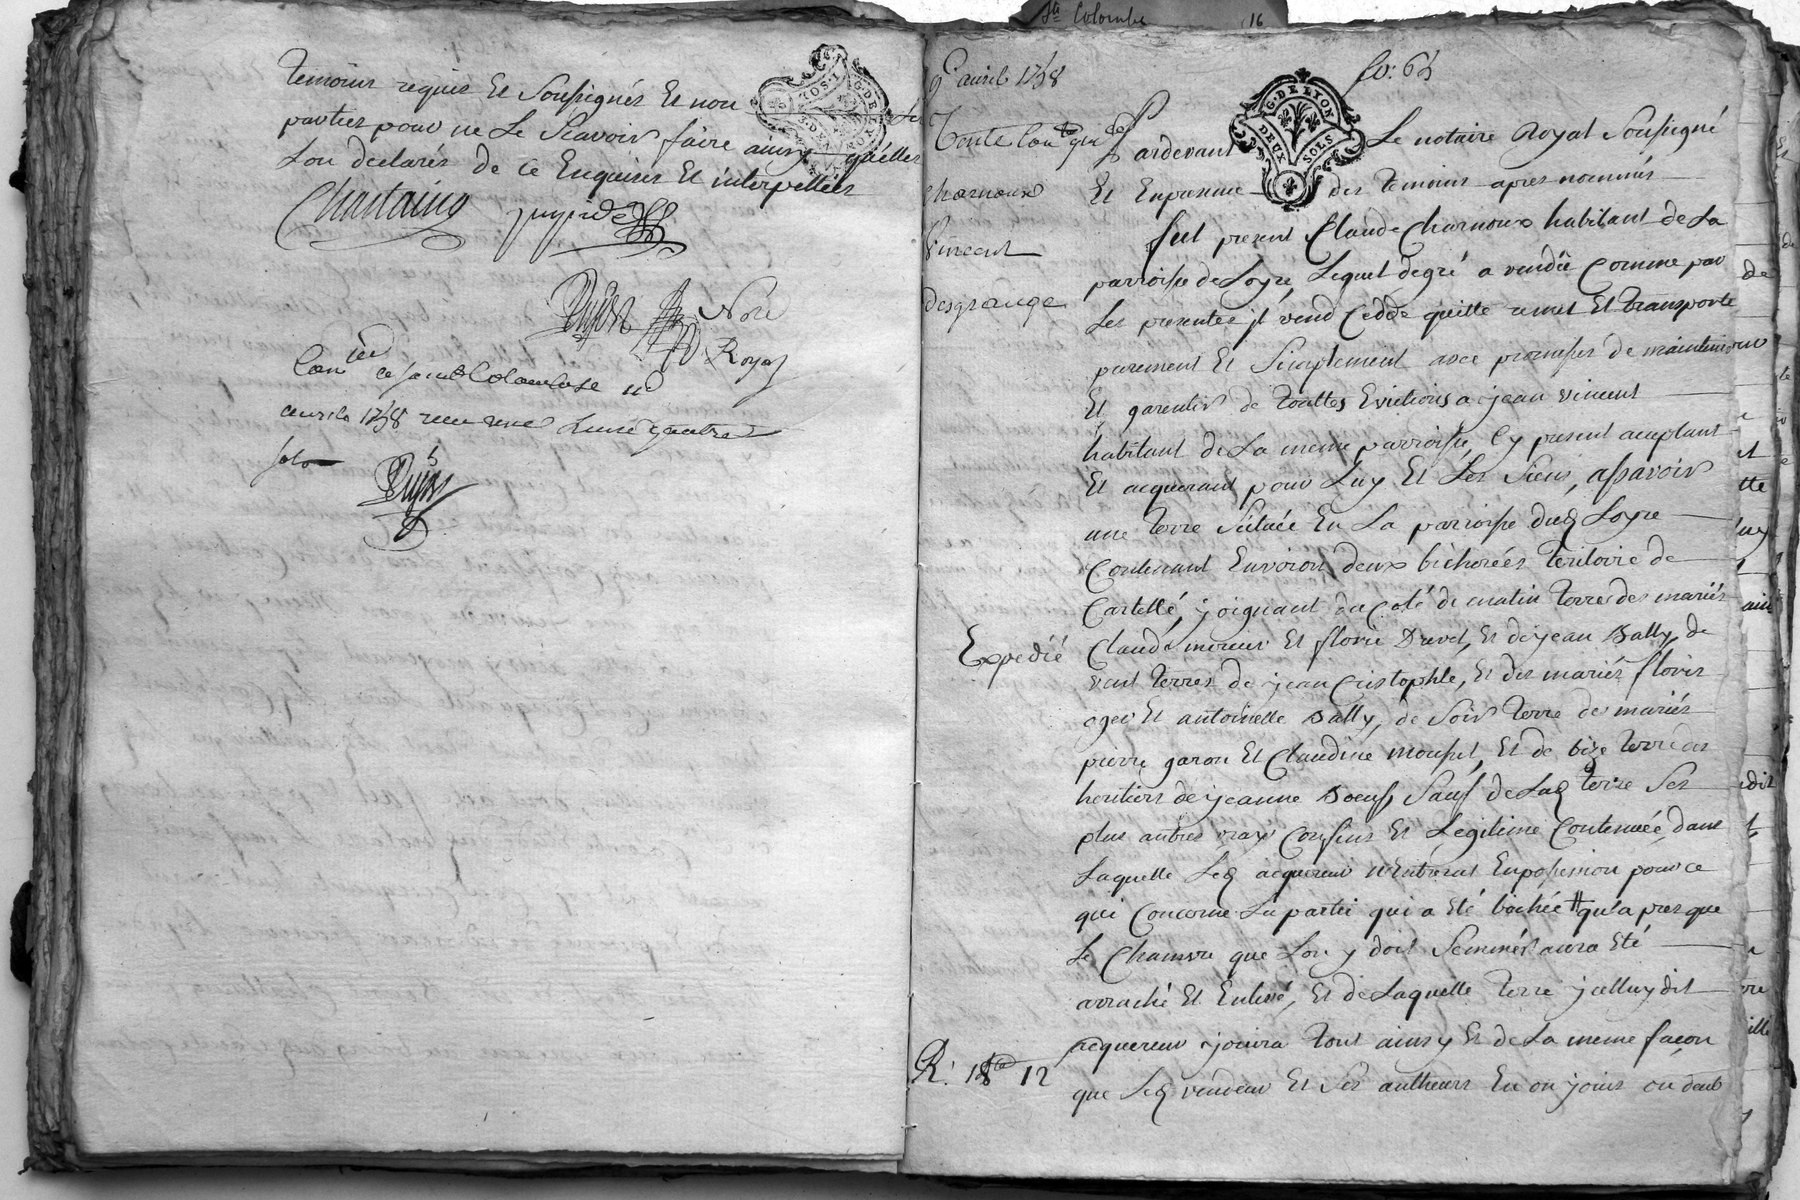 Ste Colombe
16
temoins requis Et Soussignés Et non Les
parties pour ne Le Scavoir faire ainsy qu'elles
Lon declarés de ce Enquises Et interpellées
Chastaing
Nore
Royal
Con
a Sainte Colombe
avril 1758 recu douze
sols
9e avril 1758
fo: 64
G. DE LYON
DEUX SOLS
Vente
charnoux
vincent
desgrange
Pardevant Le notaire Royal Soussigné
Et En presence des temoins apres nommés
fut present Claude Charnoux habitant de La
parroisse de Loyre, Lequel degré a vendu Comme par
Les presentes jl vend Cedde quitte remet Et transporte
purement Et Simplement avec promesses de maintenir
Et garentir de touttes Evictions a jean vincent
habitant de La meme parroisse, Cy present acceptant
Et acquerant pour Luy Et Les Siens, assavoir
une terre Scituée En La parroisse dud Loyre
Contenant Environ deux bicherées teritoire de
Cartellé, joignant du Coté de matin terre des mariés
Claude mercier Et florie Duvel, Et de jean Bally, de
vent terres de jean Cristophle, Et des mariés floris
oger Et antoinette Bally, de Soir terre de mariés
pierre garon Et Claudine mousset, Et de bize terre des
heritiers de jeanne Boeuf, Sauf de Lad terre Ses
plus autres vray Confins Et Legitime Contenuée, dans
Laquelle Led acquereur n'Entrera En possession pour ce
qui Concerne La partie qui a Eté bechée qu'apres que
Le Chanvre que Lon y doit Semmer aura Eté
arraché Et Enlevé, Et de Laquelle terre jcelluy dit
acquereur jouira tout ainsy Et de La meme façon
que Led vendeur Et Ses autheurs En on jouis ou deub
Expedié
R. 18 12